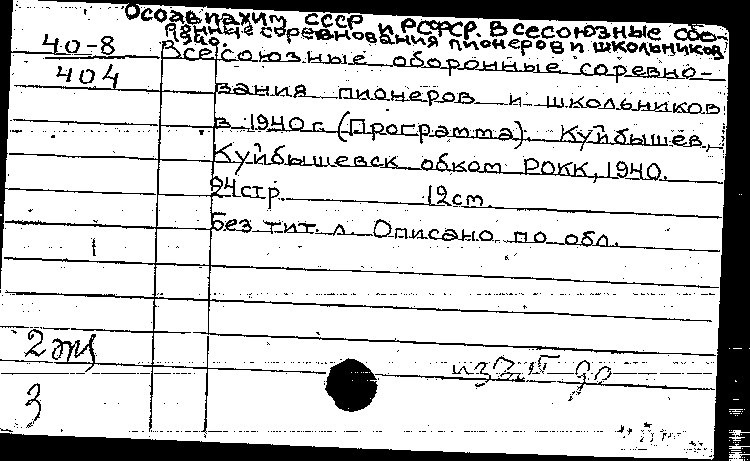 Осоавиахим СССР и РСФСР. Всесоюзные обо-
ронные соревнования пионеров и школьников
1940.
40-8
404
Всесоюзные оборонные соревно-
вания пионеров и школьников
в 1940 г. (Программа). Куйбышев,
Куйбышевск обком РОКК, 1940.
24 стр. 12 см.
без тит. л. Описано по обл.
1
2 эк
3